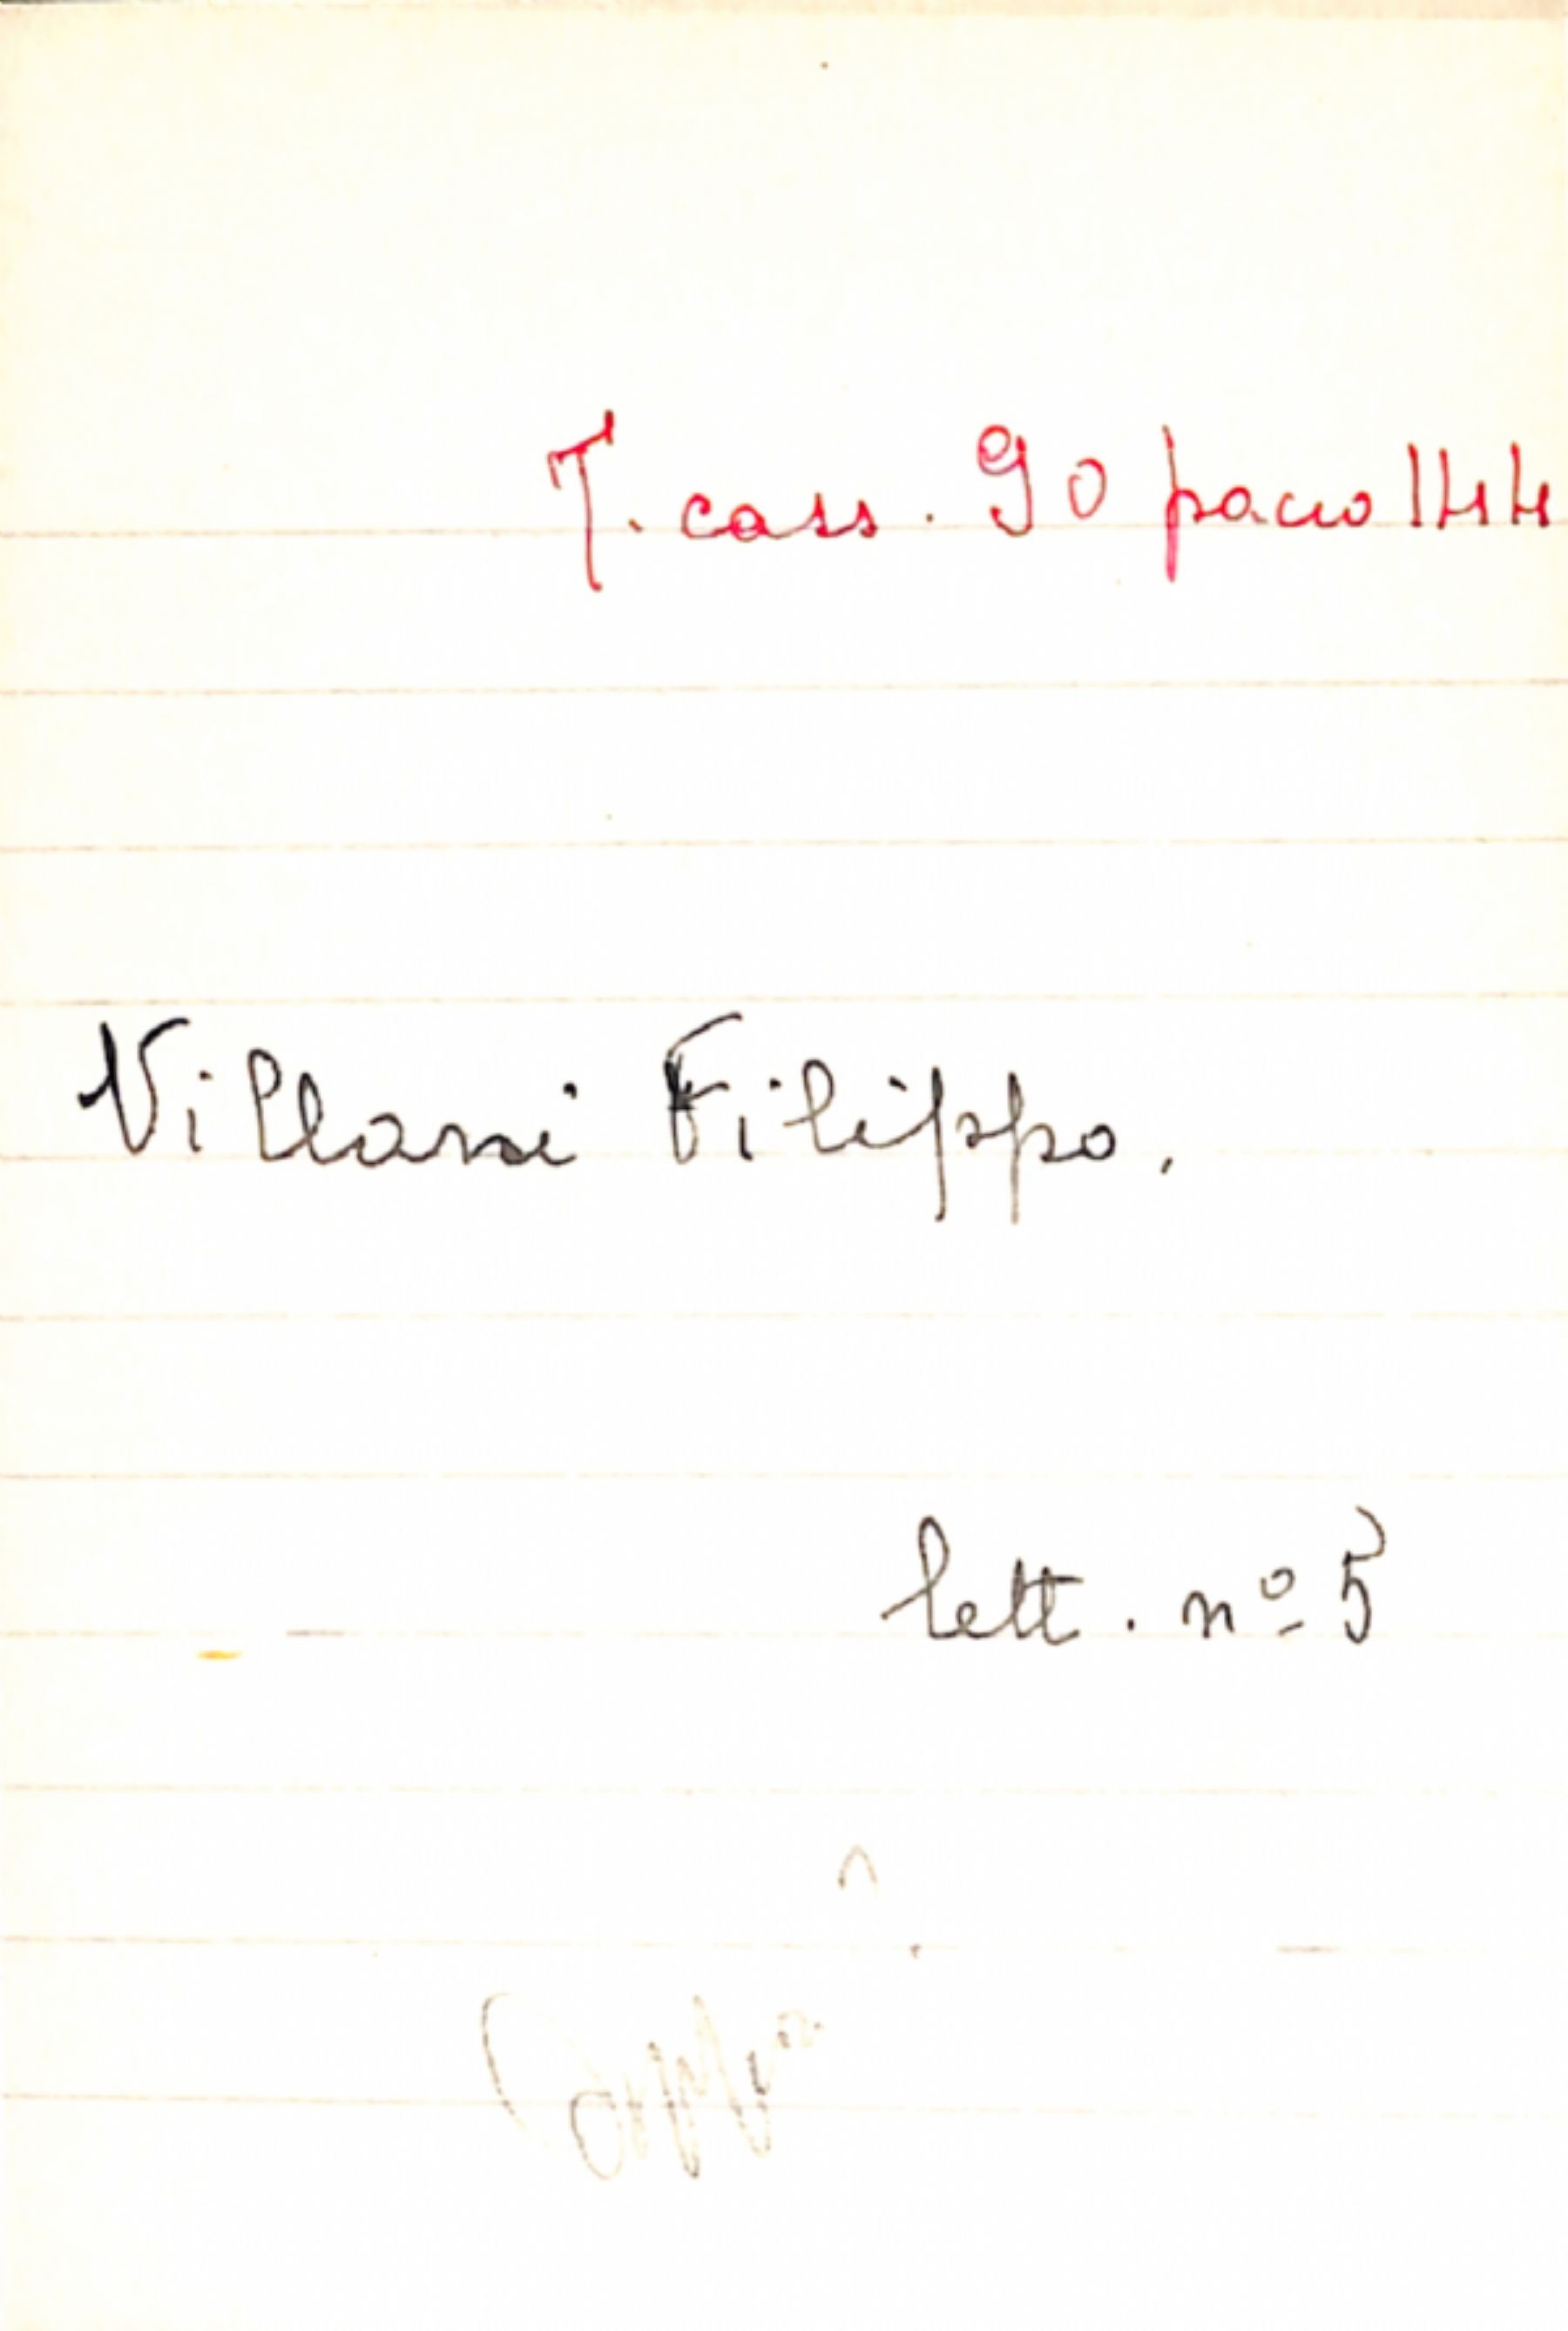 T. cass. 90 pacco 144
Villani Filippo.
lett. nº 5